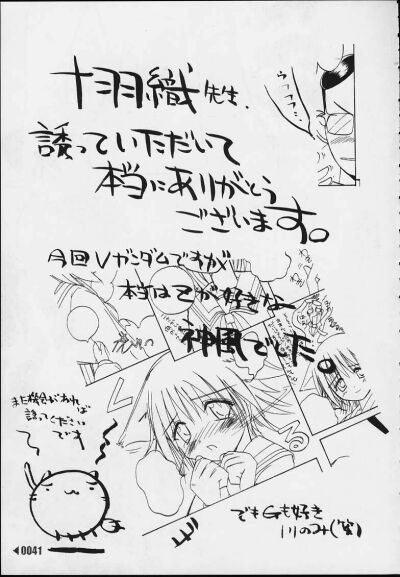 十羽織先生、
誘っていただいて
本当にありがとう
ございます。
今回Vガンダムですが
本当はZが好きな
神風でした。
ウフフフ…
また機会があれば
誘ってください
です
でもGも好き
川のみ(笑)
◀0041